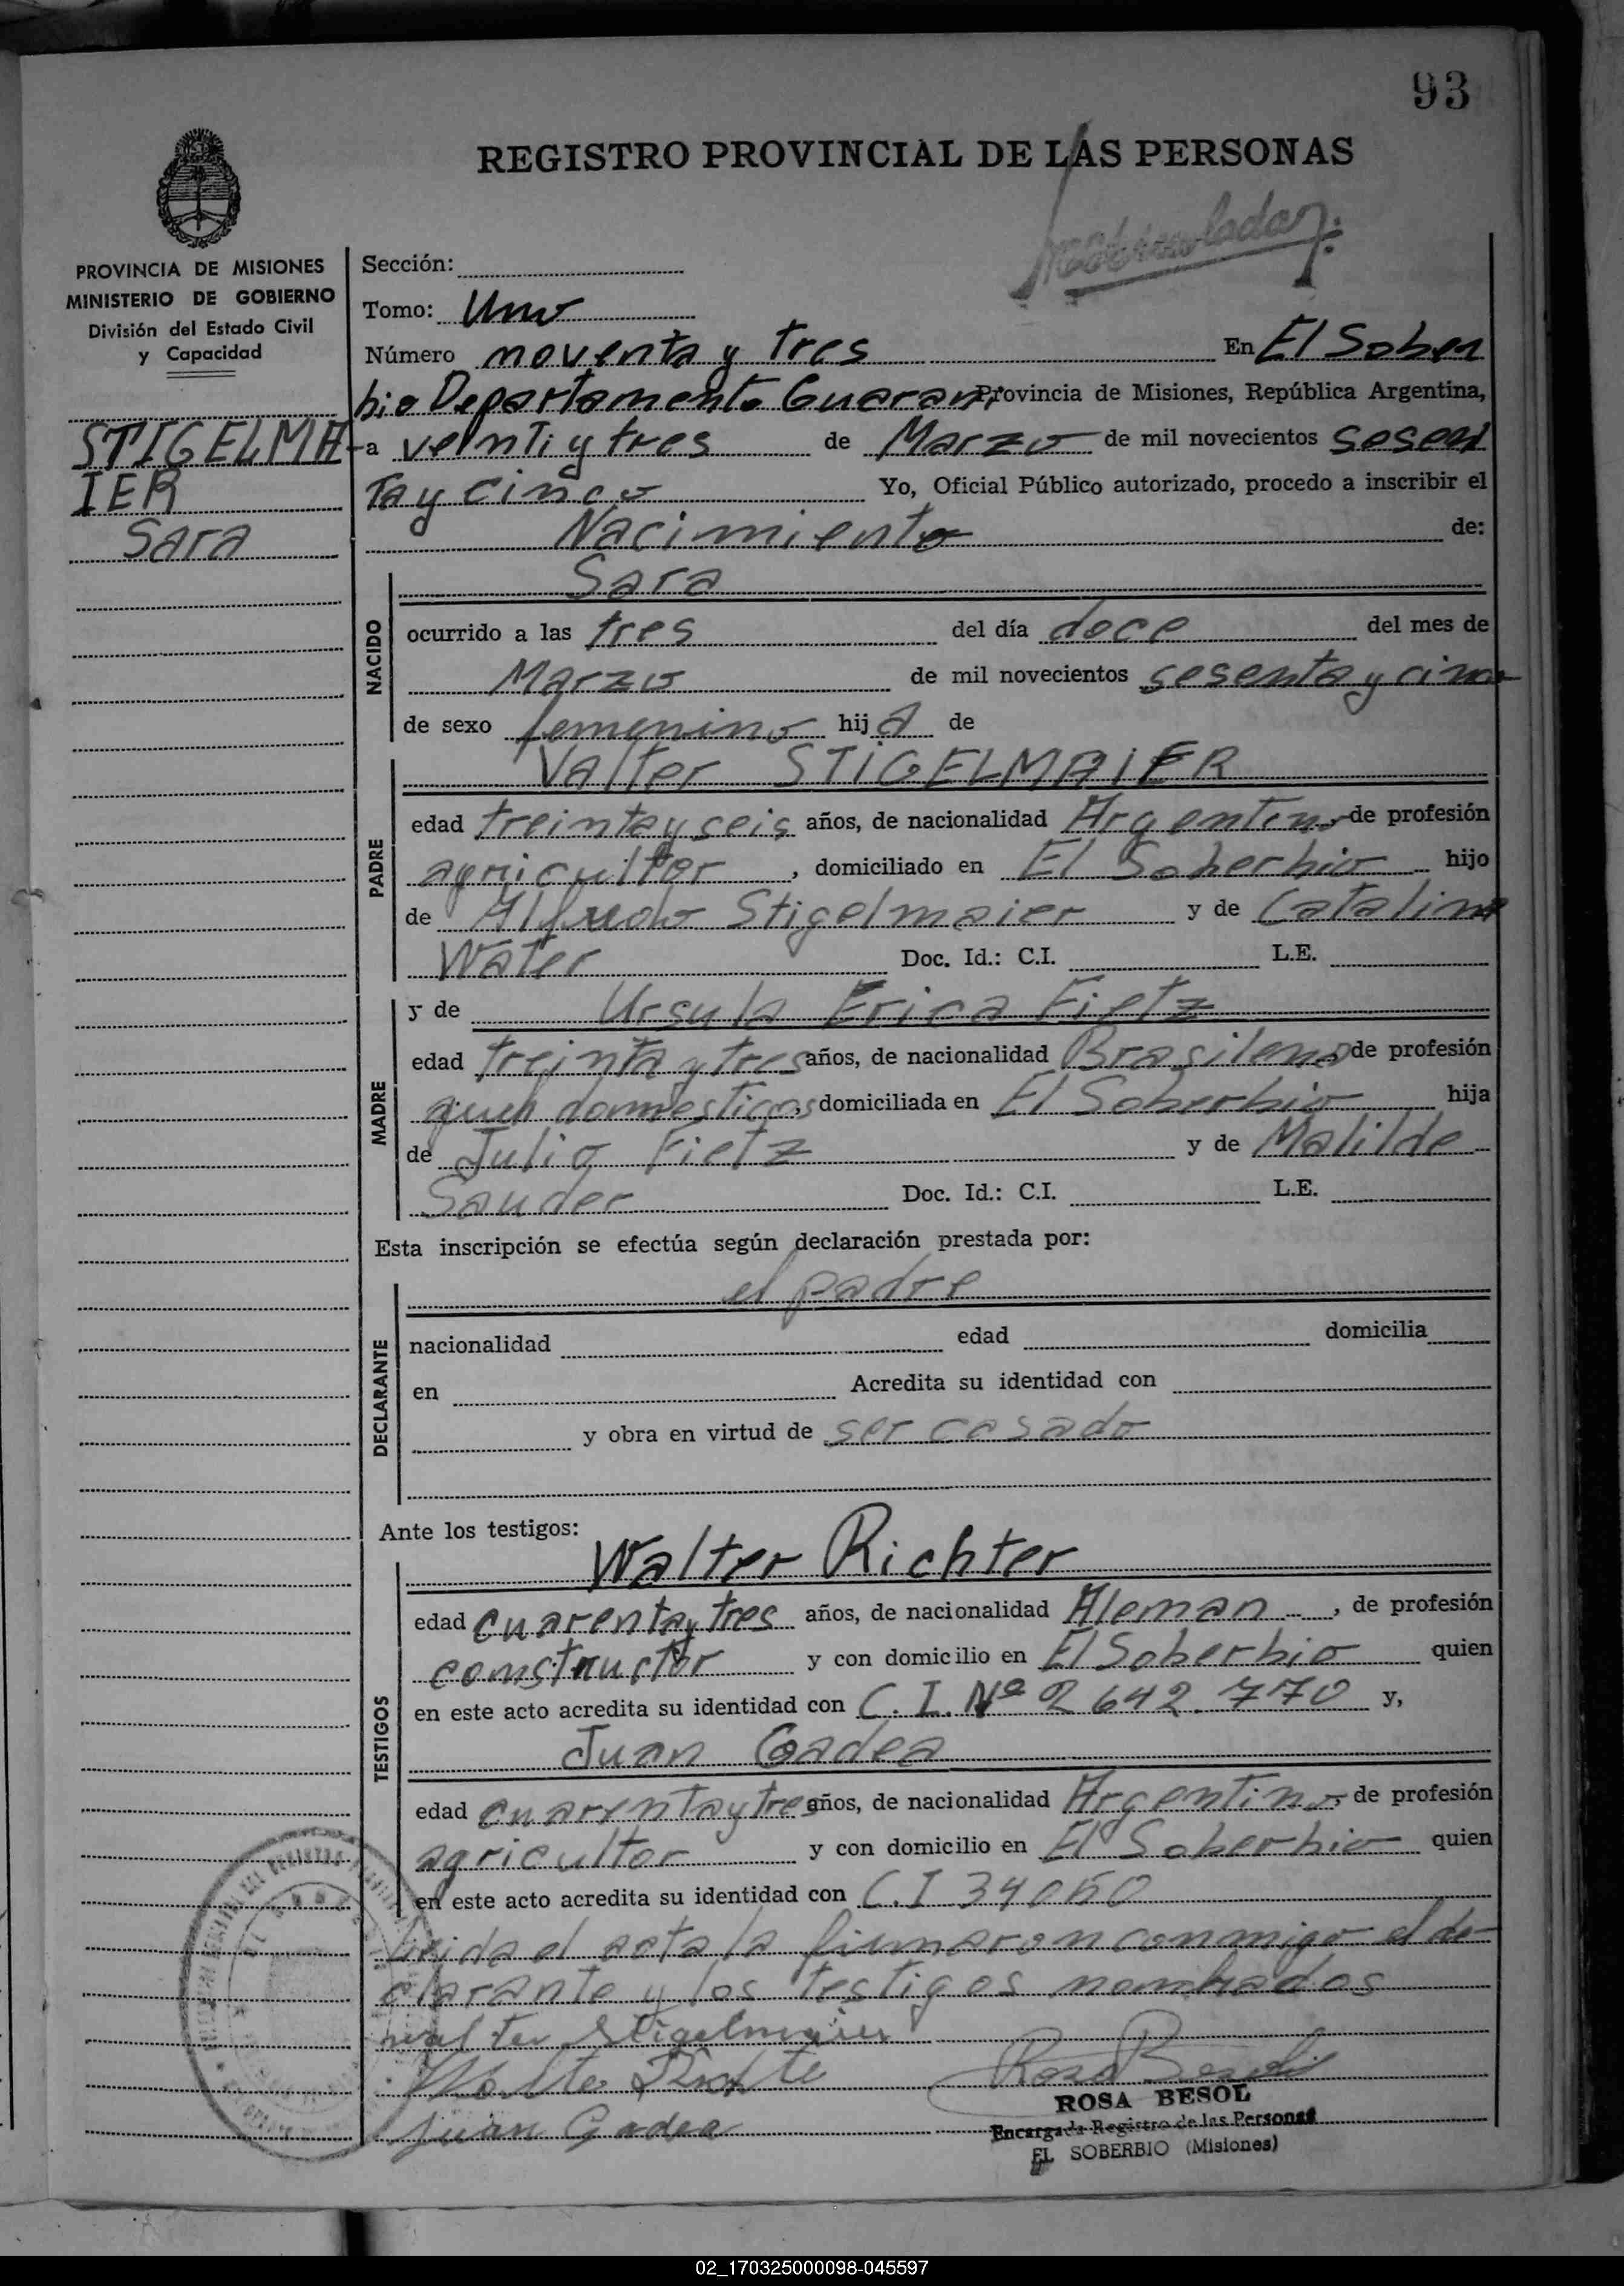 93
REGISTRO PROVINCIAL DE LAS PERSONAS
PROVINCIA DE MISIONES
MINISTERIO DE GOBIERNO
División del Estado Civil
y Capacidad
STIGELMA-
IER
Sara
Sección:
Tomo: Uno
Número noventa y tres En El Sober
bio Departamento Guaraní Provincia de Misiones, República Argentina,
a veinti y tres de Marzo de mil novecientos sesen
ta y cinco Yo, Oficial Público autorizado, procedo a inscribir el
Nacimiento de:
NACIDO
Sara
ocurrido a las tres del día doce del mes de
Marzo de mil novecientos sesenta y cinco
de sexo femenino hija de
PADRE
Valter STIGELMAIER
edad treinta y seis años, de nacionalidad Argentino, de profesión
agricultor, domiciliado en El Soberbio hijo
de Alfredo Stigelmaier y de Catalina
Water Doc. Id.: C.I. L.E.
MADRE
y de Ursula Erica Fietz
edad treinta y tres años, de nacionalidad Brasilena de profesión
queh dommesticos, domiciliada en El Soberbio hija
de Julio Fietz y de Matilde
Sauder Doc. Id.: C.I. L.E.
Esta inscripción se efectúa según declaración prestada por:
DECLARANTE
el padre
nacionalidad edad domicilia
en Acredita su identidad con
y obra en virtud de ser casado
Ante los testigos:
TESTIGOS
Walter Richter
edad cuarenta y tres años, de nacionalidad Aleman, de profesión
constructor y con domicilio en El Soberbio quien
en este acto acredita su identidad con C.I. Nº 2642.770 y,
Juan Gadea
edad cuarenta y tres años, de nacionalidad Argentino, de profesión
agricultor y con domicilio en El Soberbio quien
en este acto acredita su identidad con C.I 34060
Leida el acta la firmaron conmigo el de-
clarante y los testigos nombrados
walter Stigelmaier
Juan Gadea
Rosa Besol
ROSA BESOL
Encargada Registro de las Personas
EL SOBERBIO (Misiones)
02_170325000098-045597